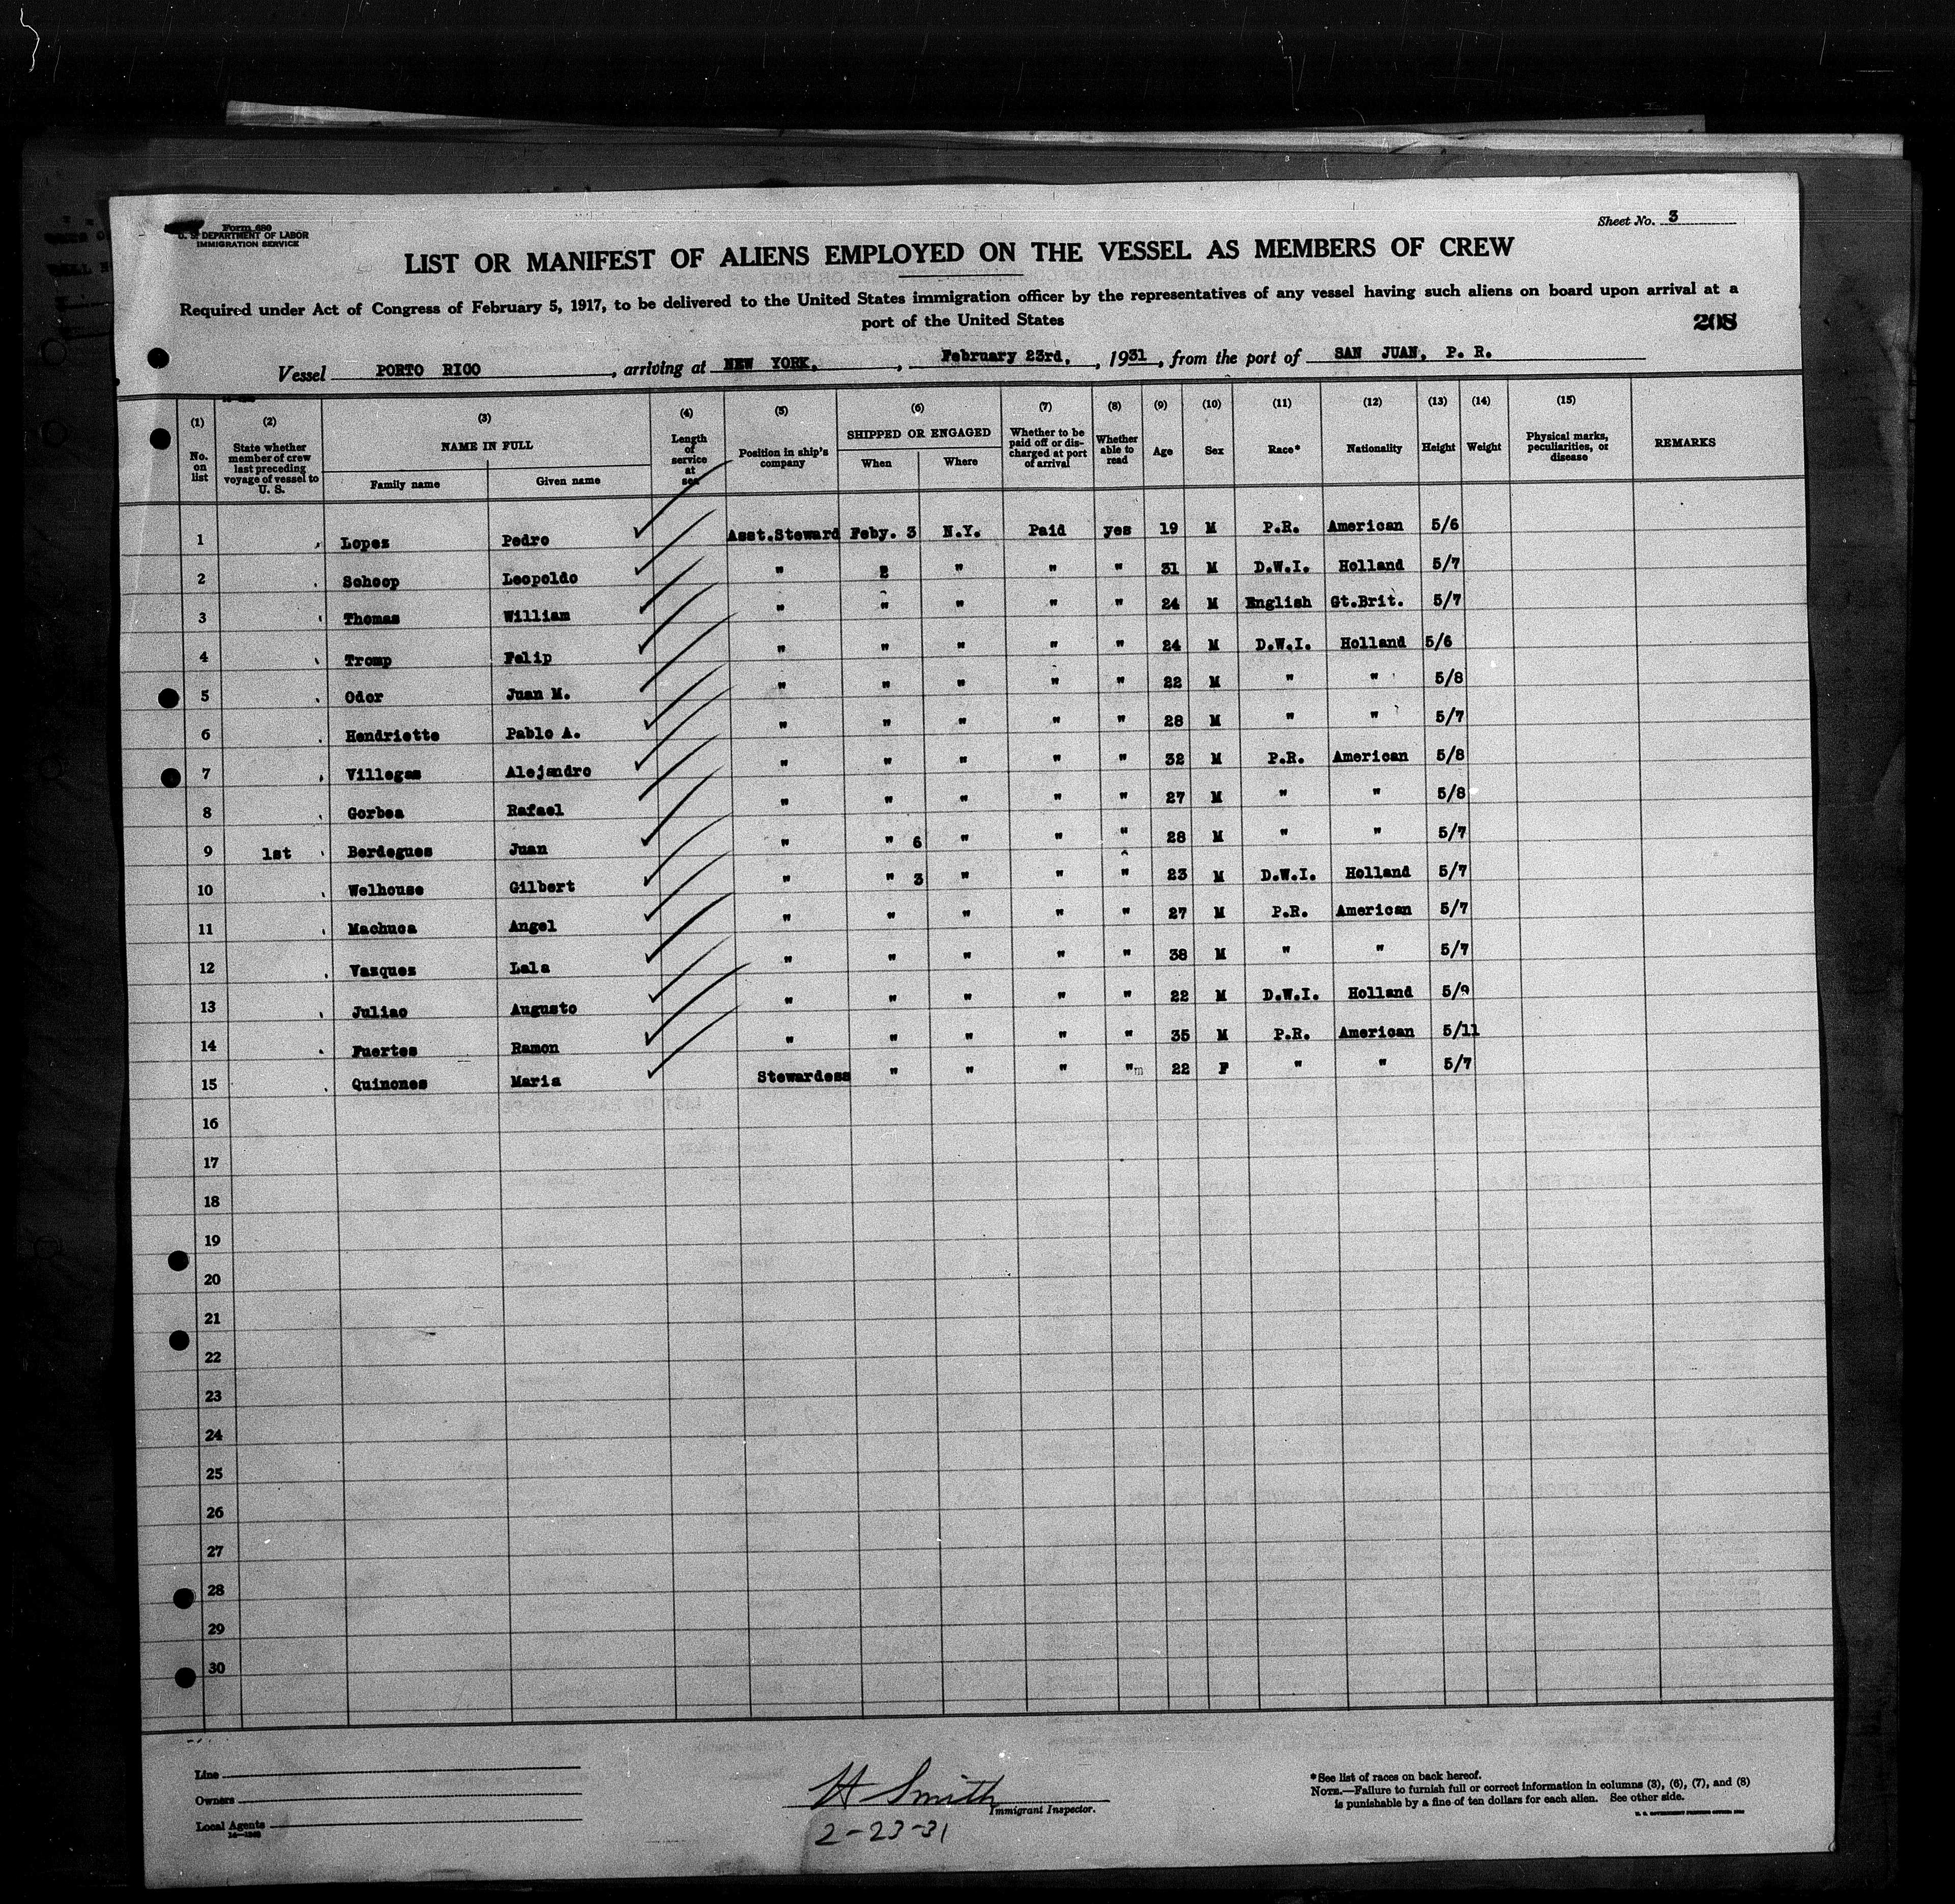 Form 680
U. S. DEPARTMENT OF LABOR
IMMIGRATION SERVICE
Sheet No. 3
LIST OR MANIFEST OF ALIENS EMPLOYED ON THE VESSEL AS MEMBERS OF CREW
Required under Act of Congress of February 5, 1917, to be delivered to the United States immigration officer by the representatives of any vessel having such aliens on board upon arrival at a
port of the United States
208
Vessel PORTO RICO, arriving at NEW YORK, , February 23rd, , 1931, from the port of SAN JUAN, P. R.
(1) (2) (3) (4) (5) (6) (7) (8) (9) (10) (11) (12) (13) (14) (15)
No. on list State whether member of crew last preceding voyage of vessel to U. S. NAME IN FULL Length of service at sea Position in ship's company SHIPPED OR ENGAGED Whether to be paid off or discharged at port of arrival Whether able to read Age Sex Race* Nationality Height Weight Physical marks, peculiarities, or disease REMARKS
Family name Given name When Where
1 Lopez Pedro Asst.Steward Feby. 3 N.Y. Paid yes 19 M P.R. American 5/6
2 Schoop Leopoldo " 2 " " " 31 M D.W.I. Holland 5/7
3 Thomas William " " " " " 24 M English Gt.Brit. 5/7
4 Tromp Felip " " " " " 24 M D.W.I. Holland 5/6
5 Odor Juan M. " " " " " 22 M " " 5/8
6 Hendriette Pablo A. " " " " " 28 M " " 5/7
7 Villegas Alejandro " " " " " 32 M P.R. American 5/8
8 Gorbea Rafael " " " " " 27 M " " 5/8
9 1st Berdegues Juan " " 6 " " " 28 M " " 5/7
10 Welhouse Gilbert " " 3 " " " 23 M D.W.I. Holland 5/7
11 Machuca Angel " " " " " 27 M P.R. American 5/7
12 Vazquez Lala " " " " " 38 M " " 5/7
13 Juliao Augusto " " " " " 22 M D.W.I. Holland 5/9
14 Fuertes Ramon " " " " " 35 M P.R. American 5/11
15 Quinones Maria Stewardess " " " "m 22 F " " 5/7
16
17
18
19
20
21
22
23
24
25
26
27
28
29
30
Line
Owners
Local Agents
H Smith
Immigrant Inspector.
2-23-31
*See list of races on back hereof.
NOTE.—Failure to furnish full or correct information in columns (3), (6), (7), and (8)
is punishable by a fine of ten dollars for each alien. See other side.